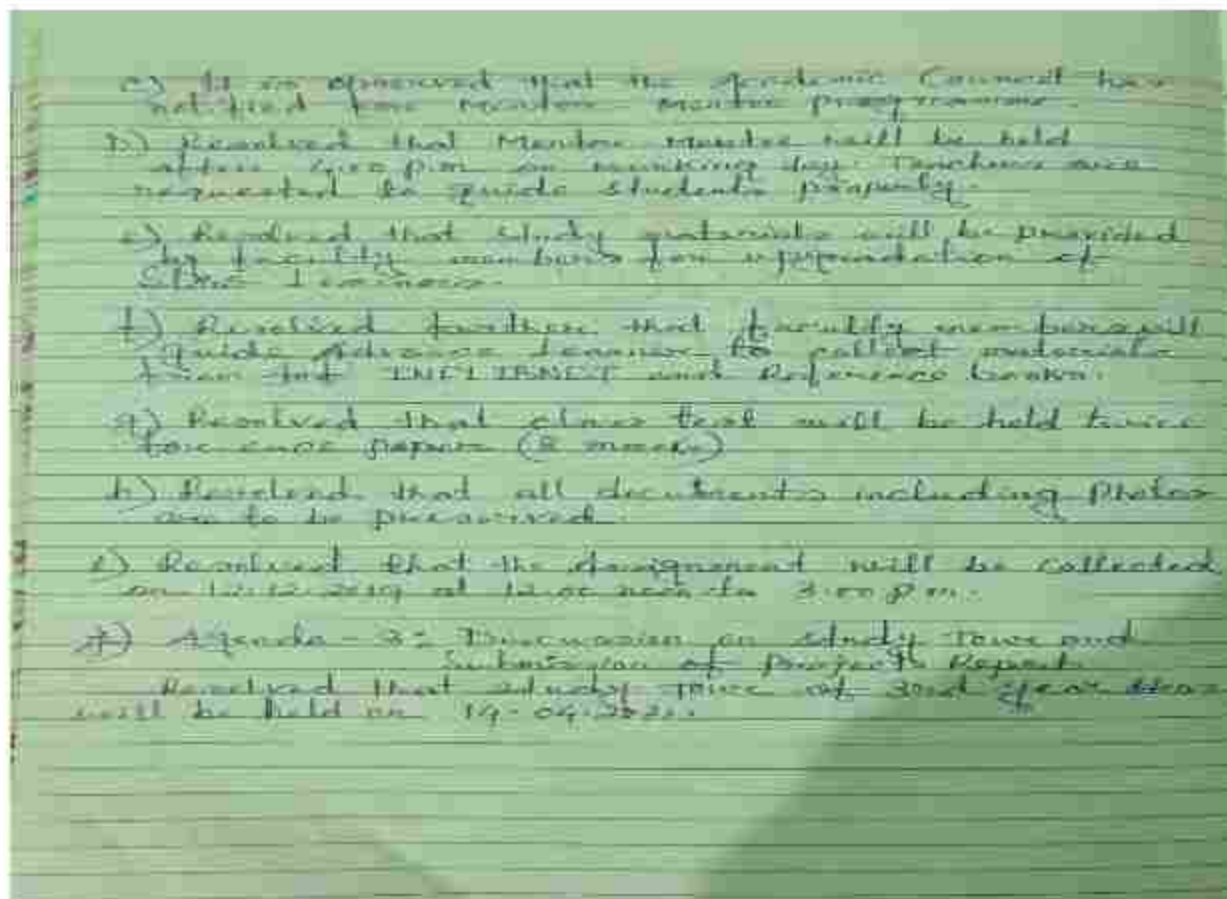 c) It is observed that the Academic Council has
notified for Mentor - Mentee programme.
D) Resolved that Mentor Mentee will be held
after p.m on working day. Teachers are
requested to guide students properly.
e) Resolved that study materials will be provided
by faculty members for of
Slow Learners.
f) Resolved further that faculty members will
guide Advance Learner to collect materials
from INFLIBNET and Reference books.
g) Resolved that class test will be held twice
for each paper
h) Resolved that all documents including Photos
are to be preserved.
i) Resolved that the Assignment will be collected
on 12.12.2019 at 12.00 noon to 3.00 p.m.
j) Agenda - 3: Discussion on study Tour and
Submission of Project Report.
Resolved that study Tour of 3rd year
will be held on